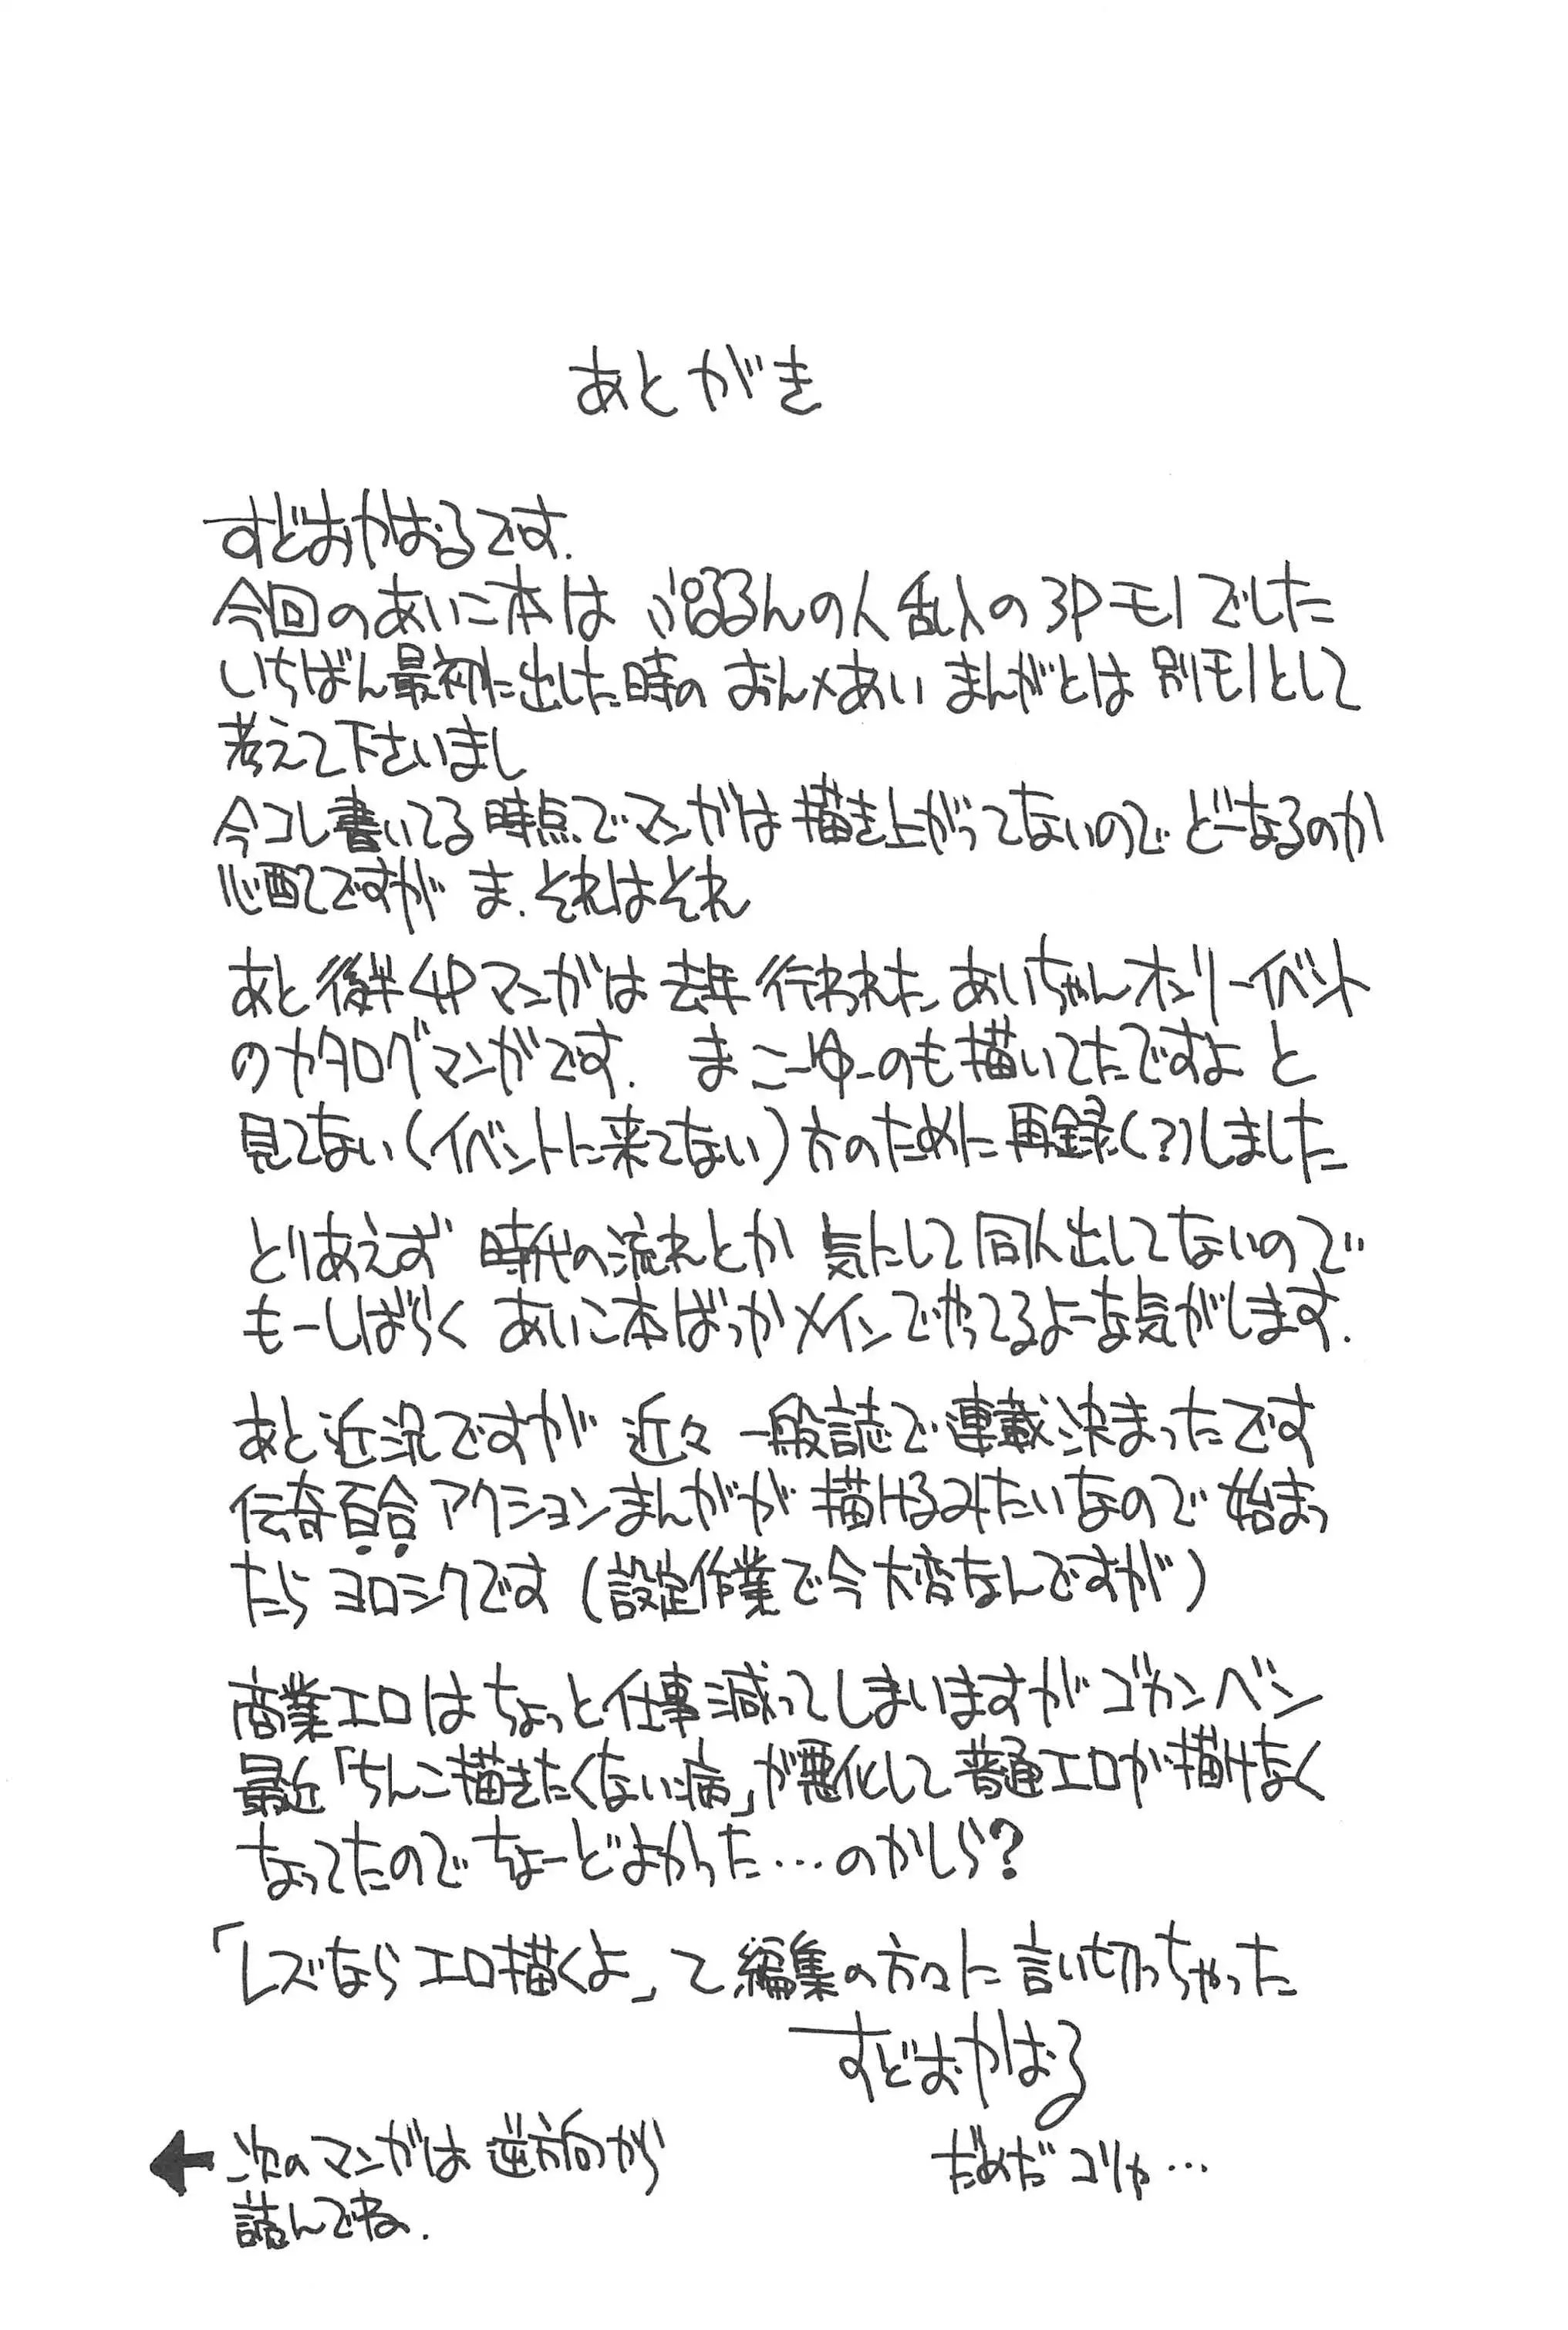 あとがき
すどおかおるです.
今回のあいこ本は ぷるるんの人乱入の3Pモノでした
いちばん最初に出した時の おん×あい まんがとは 別モノとして
考えて下さいまし
今コレ書いてる時点でマンガは描き上がってないので どーなるのか
心配ですが ま、それはそれ
あと後半4Pマンガは去年行われた あいちゃんオンリーイベント
のカタログマンガです. まこーゆーのも描いてたですよ と
見てない(イベントに来てない)方のために再録(?)しました
とりあえず 時代の流れとか 気にして同人出してないので
もーしばらく あいこ本ばっかメインでやってるよーな気がします.
あと近況ですが 近々 一般誌で連載決まったです
伝奇百合アクションまんがが 描けるみたいなので始まっ
たら ヨロシクです(設定作業で今大変なんですが)
商業エロはちょっと仕事減ってしまいますがゴカンベン
最近「ちんこ描きたくない病」が悪化して普通エロが描けなく
なってたのでちょーどよかった…のかしら?
「レズならエロ描くよ」て編集の方々に言い切っちゃった
すどおかおる
だめだコリャ…
次のマンガは逆方向から
読んでね.